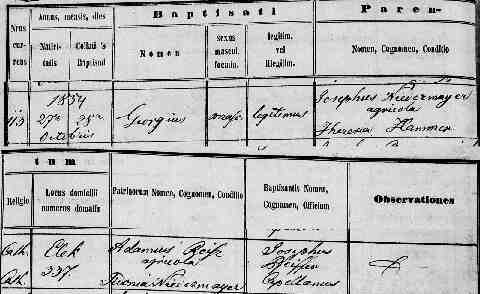 Nrus currens
Annus, mensis, dies
Baptisati
Paren-
Nativitatis
Collati Baptismi
Nomen
sexus mascul. foemin.
legitim. vel illegitim.
Nomen, Cognomen, Conditio
113
1854
27a 28a
Octobris
Georgius
masc.
legitimus
Josephus Niedermayer
agricola
Theresia Hammer
tum
Religio
Locus domicilii
numerus domus
Patrinorum Nomen, Cognomen, Conditio
Baptisantis Nomen,
Cognomen, Officium
Observationes
Cath.
Cath.
Elek
337.
Adamus Reisz
agricola
Niedermayer
Josephus
Pfeiffer
Capellanus